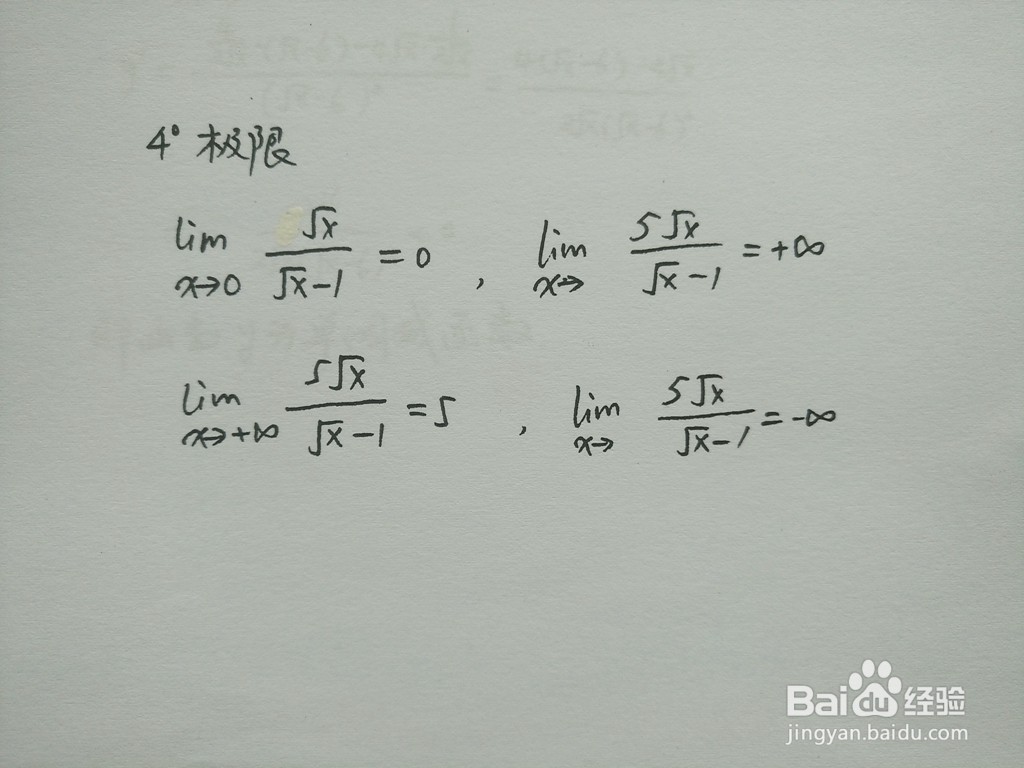 4° 极限
lim x→0 √x/(√x-1) = 0 , lim x→ 5√x/(√x-1) = +∞
lim x→+∞ 5√x/(√x-1) = 5 , lim x→ 5√x/(√x-1) = -∞
Bai du 经验
jingyan.baidu.com